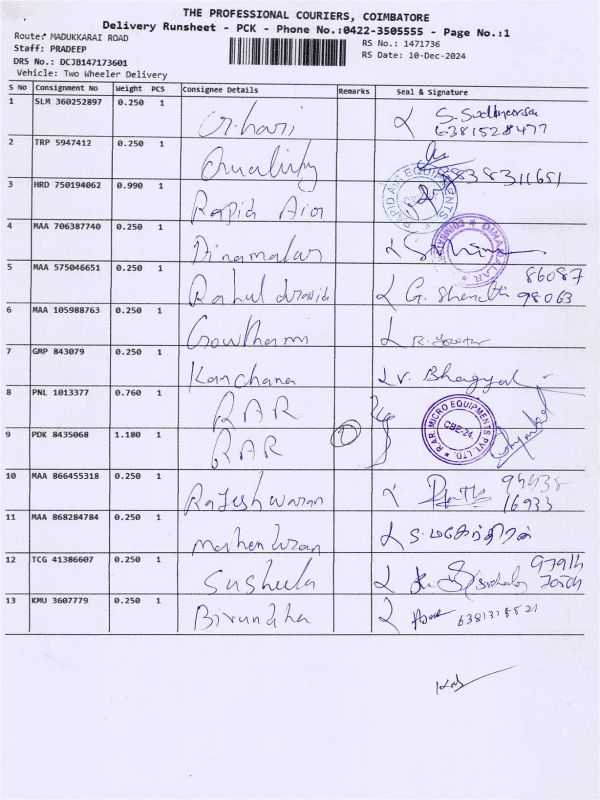 THE PROFESSIONAL COURIERS, COIMBATORE
Delivery Runsheet - PCK - Phone No.:0422-3505555 - Page No.:1
Route: MADUKKARAI ROAD
RS No.: 1471736
Staff: PRADEEP
RS Date: 10-Dec-2024
DRS No.: DCJB147173601
Vehicle: Two Wheeler Delivery
S No Consignment No Weight PCS Consignee Details Remarks Seal & Signature
1 SLM 360252897 0.250 1 hari
6381528477
2 TRP 5947412 0.250 1 Quality
3 HRD 750194062 0.990 1 Rapid Air
RAPID AIR EQUIPMENTS
4 MAA 706387740 0.250 1 Dinamalar
DINAMALAR
5 MAA 575046651 0.250 1 Rahul dravid
86087
98063
6 MAA 105988763 0.250 1 Gowthami
7 GMP 843079 0.250 1 Kanchana V. Bhagya
8 PNL 1013377 0.760 1 RAR
R.A.R. MICRO EQUIPMENTS PVT. LTD.
CBE-24.
9 PDK 8435068 1.180 1 RAR
10 MAA 866455318 0.250 1 Rajeshwaran
16933
11 MAA 868284784 0.250 1 S. மகேந்திரன்
12 TCG 41386607 0.250 1 Susheela
13 KMU 3607779 0.250 1 Birundha